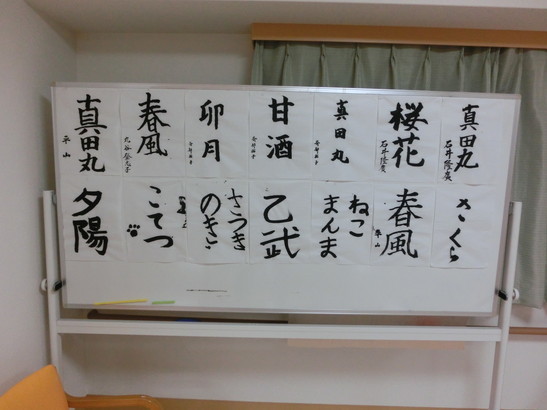 真田丸
石井隆広
桜花
石井隆広
真田丸
甘酒
卯月
春風
真田丸
平山
さくら
春風
平山
ねこ
まんま
乙武
さつき
のきさ
こてつ
夕陽